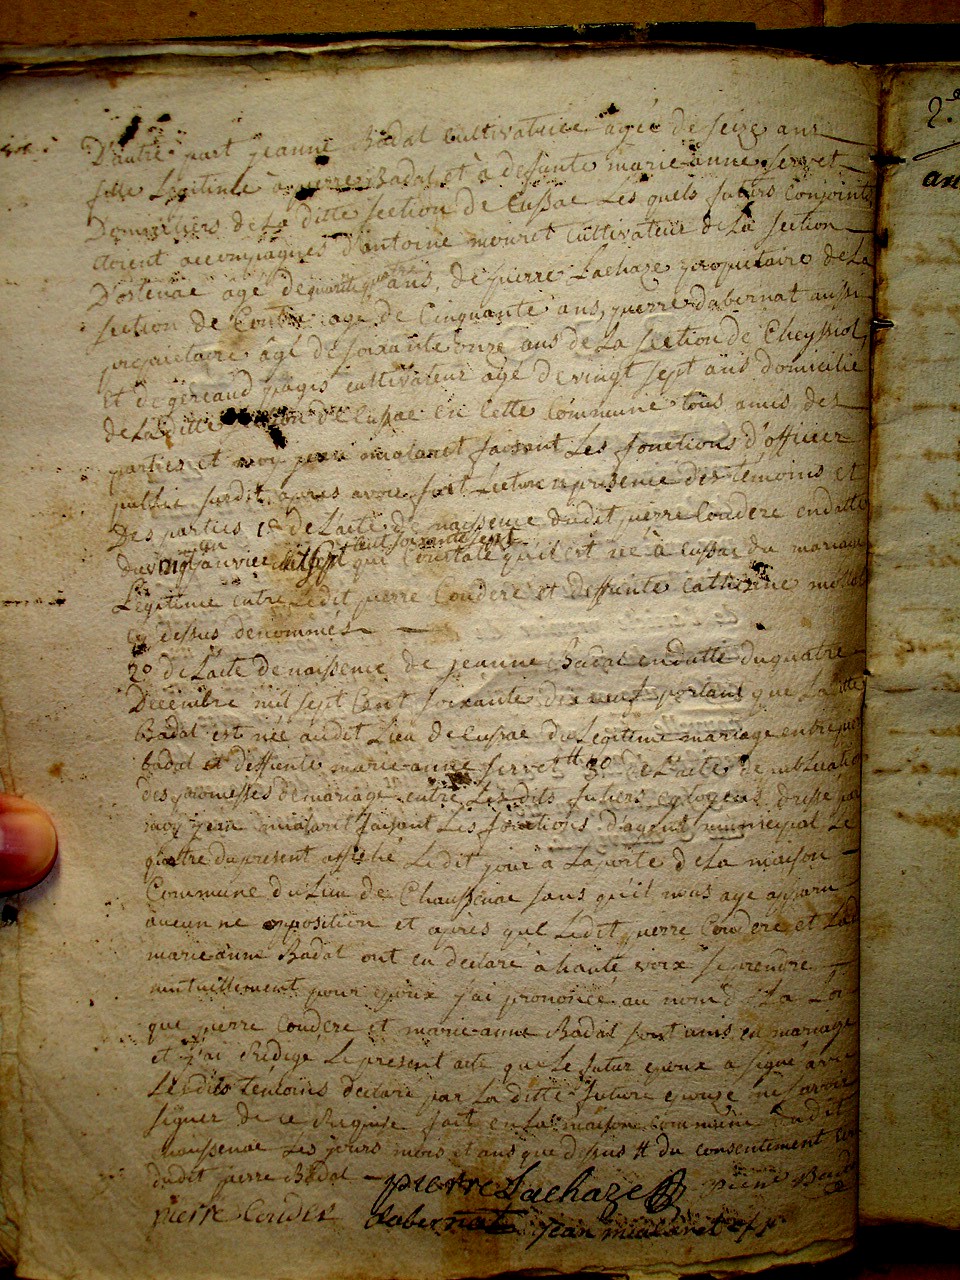 D'autre part jeanne Badal cultivatrice agée de seize ans
fille Legitime à pierre Badal et à deffunte marie-anne servet
Domiciliers de La ditte section de Cussac Les quels futurs Conjoints
étoient accompagnes D'antoine mouret Cultivateur de La section
D'ostenac age de quarante quatre ans, de pierre Lachaze propriétaire de La
section de Contre age de Cinquante ans, pierre dabernat aussi
propriétaire âgé de soixante onze ans de La section de Cheyssiol
et de géreaud pagis cultivateur agé de vingt sept ans domicilié
de La ditte section de Cussac en Cette Commune tous amis des
parties et moy jean mialaret faisant Les fonctions d'officier
public susdit, apres avoir fait Lecture en presence des témoins et
Des parties 1º de L'acte de naissence dudit pierre Couderc en datte
du vingt janvier mil sept cent soixante sept qui Constate qu'il est né à Cussac du mariage
Légitime entre Ledit pierre Couderc et deffunte Catherine
cy dessus denommés
2º de L'acte de naissence de jeanne Badal en datte du quatre
Décembre mil sept Cent soixante dix neuf portant que La ditte
Badal est née audit Lieu de Cussac du Legitime mariage entre pierre
badal et deffunte marie-anne servet 3º de L'acte de publication
des promesses de mariage entre Les dits futurs epoux dressé par
moy jean mialaret faisant Les fonctions d'agent municipal Le
quatre du present affiché Ledit jour à La porte de La maison
Commune du Lieu de Chaussenac sans qu'il nous aye apparu
aucunne opposition et après que Ledit pierre Couderc et Lad
marie anne Badal ont eu déclaré à haute voix se prendre
mutuellement pour epoux j'ai prononcé au nom de La Loi
que pierre Couderc et marie-anne Badal sont unis en mariage
et j'ai Rédigé Le present acte que Le futur epoux a signé avec
Lesdits témoins déclaré par La ditte future epouse ne savoir
signer de ce Requise fait en La maison Commune dudit
chaussenac Les jours mois et ans que dessus # du consentement
dudit pierre Badal pierre Lachaze
pierre Couderc dabernat jean mialaret